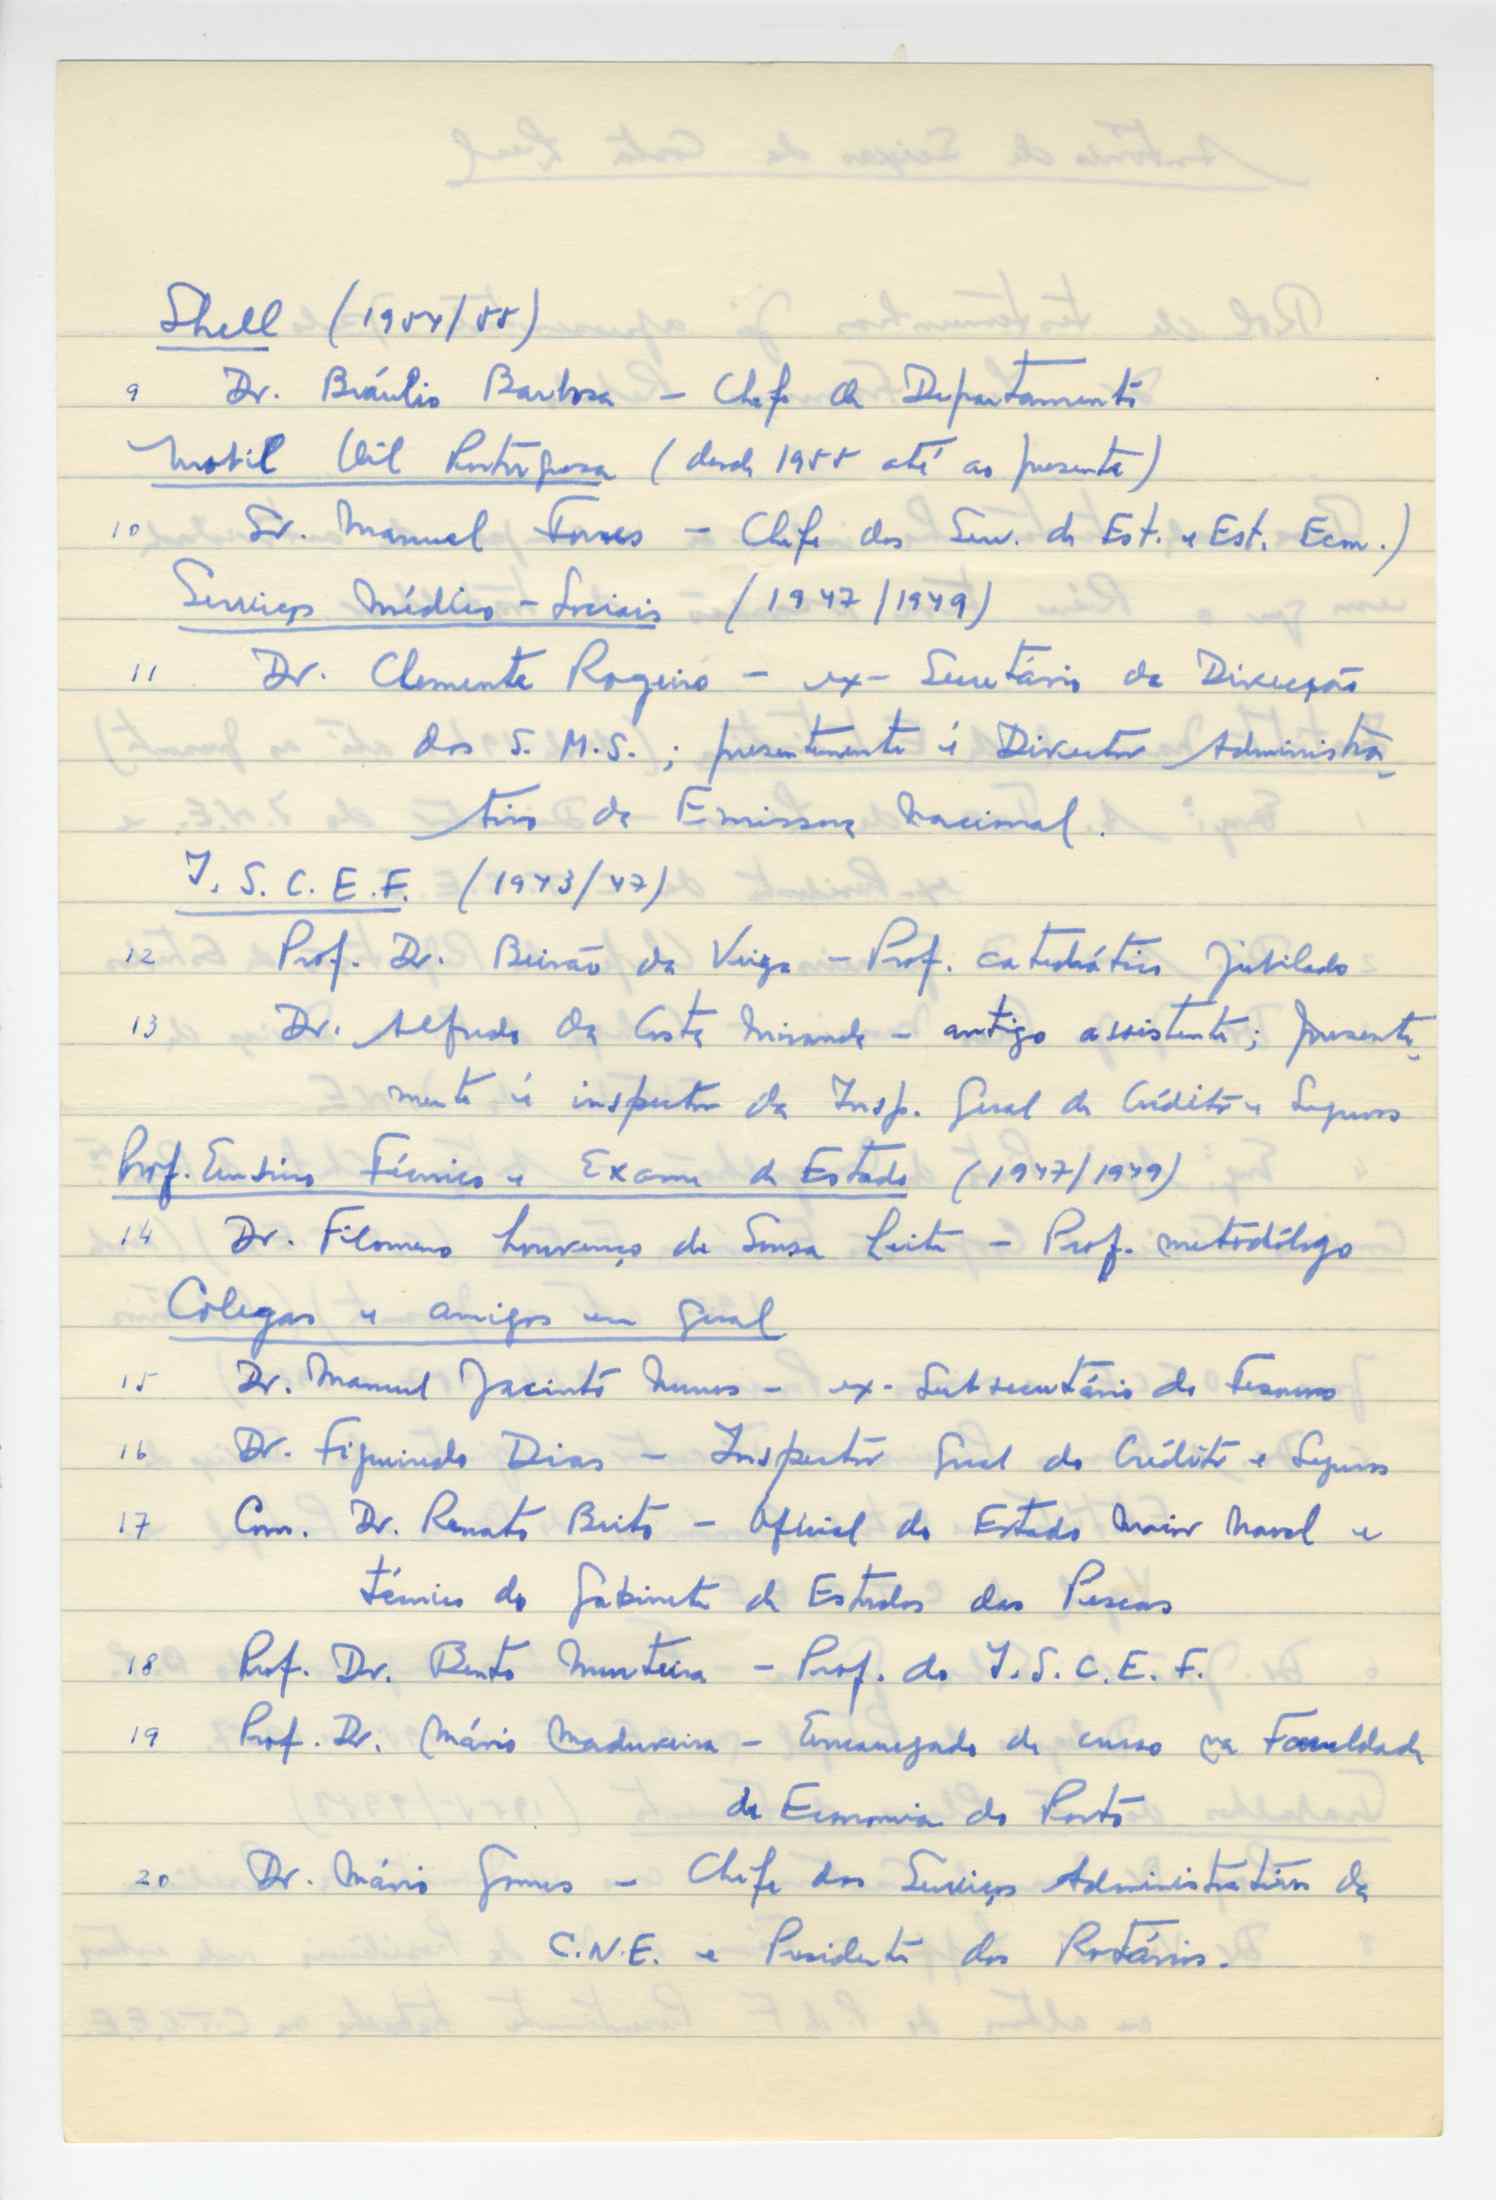 Shell (1954/55)
9 Dr. Bráulio Barbosa - Chefe de Departamento
Mobil Oil Portuguesa (desde 1955 até ao presente)
10 Sr. Manuel Torres - Chefe dos Serv. de Est. e Est. Econ.)
Serviços Médico-Sociais (1947/1949)
11 Dr. Clemente Rogeiro - ex-Secretário da Direcção
dos S.M.S.; presentemente é Director Administra-
tivo da Emissora Nacional.
I.S.C.E.F. (1943/47)
12 Prof. Dr. Beirão da Veiga - Prof. catedrático jubilado
13 Dr. Alfredo da Costa Miranda - antigo assistente; presente-
mente é inspector da Insp. Geral de Crédito e Seguros
Prof. Ensino Técnico e Exame de Estado (1947/1949)
14 Dr. Filomeno Lourenço de Sousa Leite - Prof. metodólogo
Colegas e amigos em geral
15 Dr. Manuel Jacinto Nunes - ex-Subsecretário do Tesouro
16 Dr. Figueiredo Dias - Inspector Geral do Crédito e Seguros
17 Com. Dr. Renato Brito - Oficial do Estado Maior Naval e
técnico do Gabinete de Estudos das Pescas
18 Prof. Dr. Bento Murteira - Prof. do I.S.C.E.F.
19 Prof. Dr. Mário Madureira - Encarregado de curso na Faculdade
de Economia do Porto
20 Dr. Mário Gomes - Chefe dos Serviços Administrativos da
C.N.E. e Presidente dos Rotários.